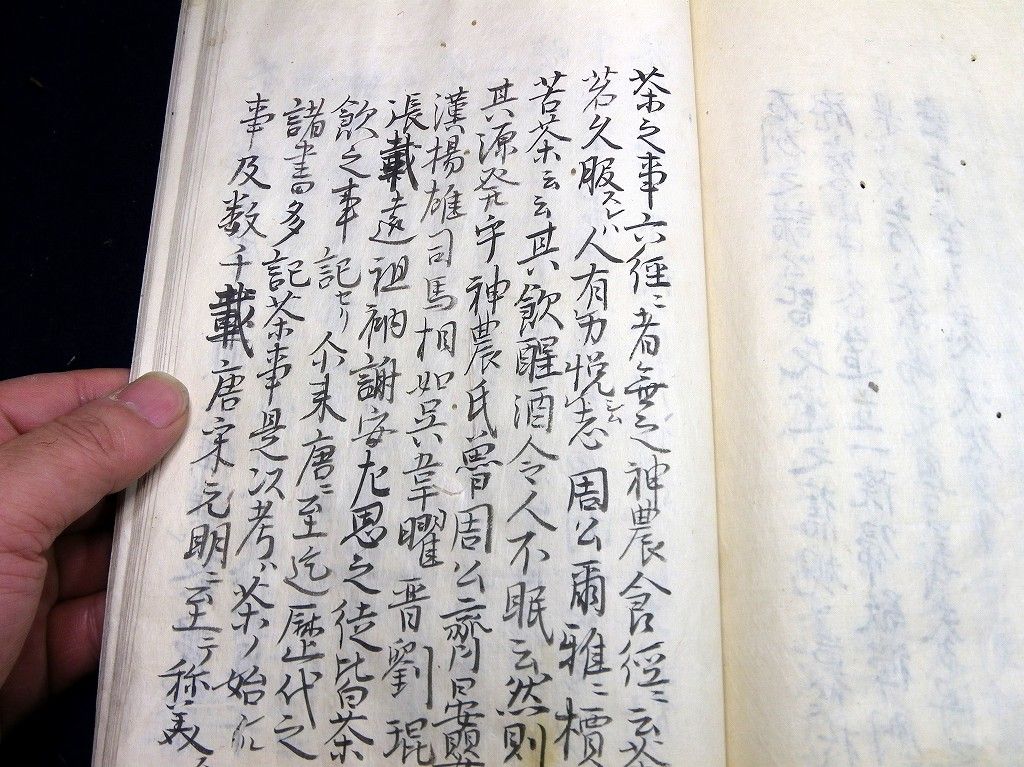 茶之事六經ニ者無之神農食經ニ云茶
茗久服スレバ人有力悦シム志周公爾雅ニ檟
苦茶云云其飲醒酒令人不眠云然則
其源発乎神農氏曽周公齊晏嬰
漢揚雄司馬相如呉韋曜晋劉琨
張載遠祖納謝安左思之徒皆茶
飲之事記セリ尒来唐ニ至迄歴代之
諸書多記茶事是以考ハ茶ノ始
事及数千載唐宋元明ニ至テ称美